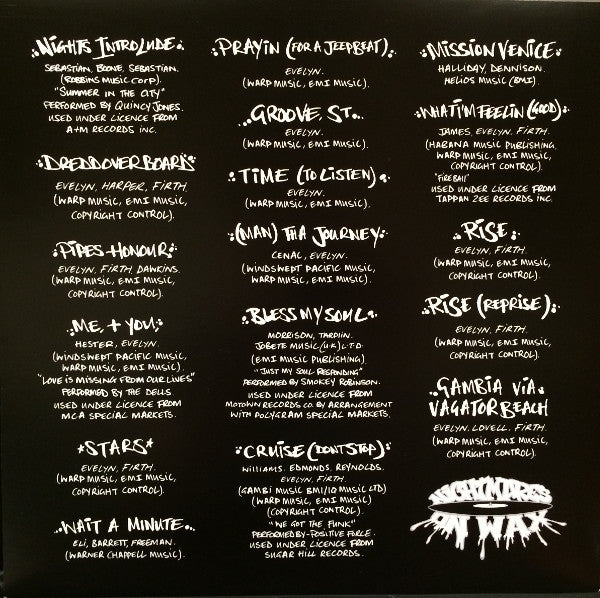 NIGHTS INTROLUDE
SEBASTIAN, BOONE, SEBASTIAN.
(ROBBINS MUSIC CORP).
"SUMMER IN THE CITY"
PERFORMED BY QUINCY JONES.
USED UNDER LICENCE FROM
A+M RECORDS INC.
DREDDOVERBOARD
EVELYN, HARPER, FIRTH.
(WARP MUSIC, EMI MUSIC,
COPYRIGHT CONTROL).
PIPES HONOUR
EVELYN, FIRTH, DAWKINS.
(WARP MUSIC, EMI MUSIC,
COPYRIGHT CONTROL).
ME + YOU
HESTER, EVELYN.
(WINDSWEPT PACIFIC MUSIC,
WARP MUSIC, EMI MUSIC).
"LOVE IS MISSING FROM OUR LIVES"
PERFORMED BY THE DELLS
USED UNDER LICENCE FROM
MCA SPECIAL MARKETS.
*STARS*
EVELYN, FIRTH.
(WARP MUSIC, EMI MUSIC,
COPYRIGHT CONTROL).
WAIT A MINUTE
ELI, BARRETT, FREEMAN.
(WARNER CHAPPELL MUSIC).
PRAYIN (FOR A JEEPBEAT)
EVELYN.
(WARP MUSIC, EMI MUSIC).
GROOVE ST.
EVELYN.
(WARP MUSIC, EMI MUSIC).
TIME (TO LISTEN)
EVELYN.
(WARP MUSIC, EMI MUSIC).
(MAN) THA JOURNEY
CENAC, EVELYN.
(WINDSWEPT PACIFIC MUSIC,
WARP MUSIC, EMI MUSIC).
BLESS MY SOUL
MORRISON, TARPLIN.
JOBETE MUSIC (U.K) L.T.D.
(EMI MUSIC PUBLISHING).
"JUST MY SOUL RESPONDING"
PERFORMED BY SMOKEY ROBINSON.
USED UNDER LICENCE FROM
MOTOWN RECORDS CO BY ARRANGEMENT
WITH POLYGRAM SPECIAL MARKETS.
CRUISE (DON'T STOP)
WILLIAMS. EDMONDS. REYNOLDS.
EVELYN, FIRTH.
(GAMBI MUSIC BMI/IQ MUSIC LTD)
(WARP MUSIC, EMI MUSIC)
(COPYRIGHT CONTROL).
"WE GOT THE FUNK"
PERFORMED BY-POSITIVE FORCE.
USED UNDER LICENCE FROM
SUGAR HILL RECORDS.
MISSION VENICE
HALLIDAY, DENNISON.
HELIOS MUSIC (EMI).
WHAT I'M FEELIN (GOOD)
JAMES, EVELYN, FIRTH.
(HABANA MUSIC PUBLISHING.
WARP MUSIC, EMI MUSIC,
COPYRIGHT CONTROL).
"FIREBALL"
USED UNDER LICENCE FROM
TAPPAN ZEE RECORDS INC.
RISE
EVELYN, FIRTH.
(WARP MUSIC, EMI MUSIC,
COPYRIGHT CONTROL).
RISE (REPRISE)
EVELYN, FIRTH.
(WARP MUSIC, EMI MUSIC,
COPYRIGHT CONTROL).
GAMBIA VIA
VAGATOR BEACH
EVELYN. LOVELL. FIRTH.
(WARP MUSIC, EMI MUSIC,
COPYRIGHT CONTROL).
NIGHTMARES
ON WAX